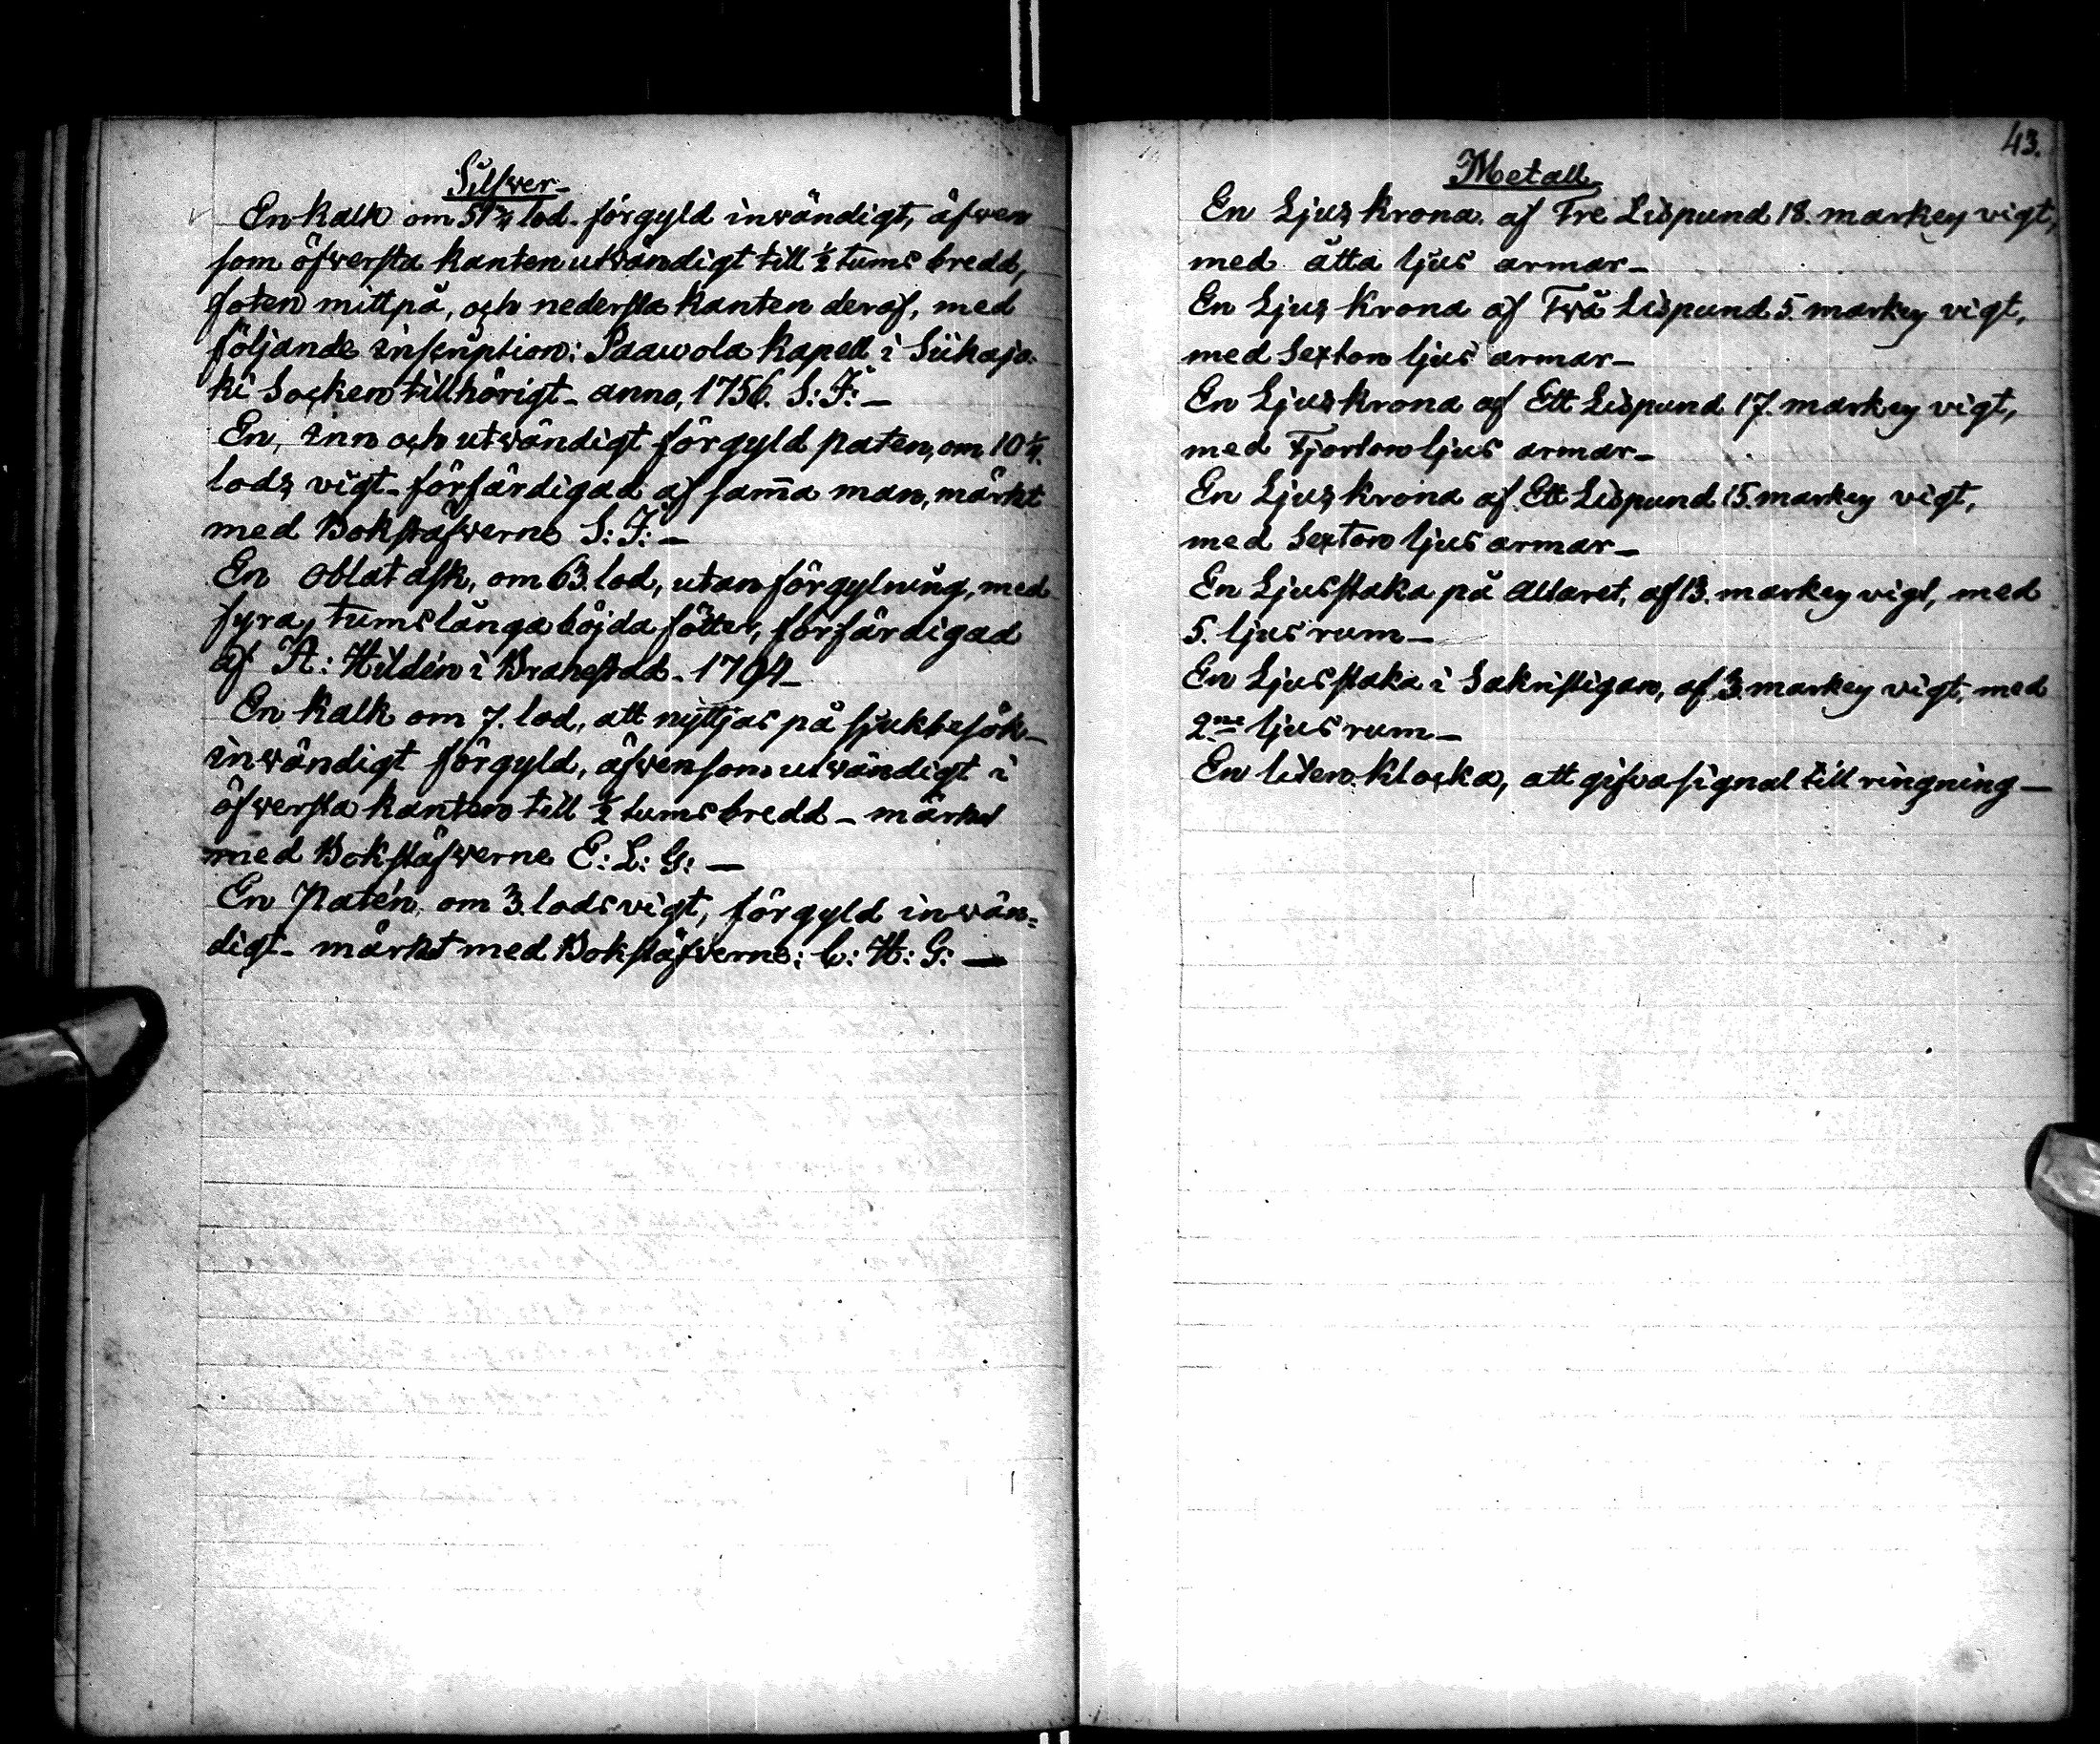 Silfwer_
En kalk om 51¾ lod. förgyld inwändigt, äfwen
som öfwersta kanten utwändigt till ½ tums bredd,
foten mittpå, och nedersta kanten deraf, med
följande inscription: Paawola kapell i Siikajo-
ki Socken tillhörigt_ anno, 1756. S: F: _
En, inn och utwändigt förgyld paten, om 10¼
lods vigt_ förfärdigad af sam̄a man, märkt
med Bokstäfwerne S: F: _
En Oblat ask, om 63. lod, utan förgylning, med
fyra, tums långa böjda fötter, förfärdigad
af A: Hildén i Brahestad_ 1794_
En kalk om 7. lod, att nyttjas på sjukbesök_
inwändigt förgyld, äfwensom utwändigt i
öfwersta kanten till ½ tums bredd_ märkt
med Bokstäfwerne E: L: G: _
En Patén, om 3. lods vigt, förgyld inwän=
digt_ märkt med Bokstäfwerne: C: H: G: _
43.
Metall
En Ljus krona. af Tre Lispund 18. markers vigt,
med åtta ljus armar_
En Ljus krona af Twå Lispund 5. markers vigt,
med Sexton ljus armar_
En Ljus krona af Ett Lispund 17. markers vigt,
med Fjorton ljus armar_
En Ljus krona af Ett Lispund 15. markers vigt,
med Sexton ljus armar_
En Ljusstaka på Altaret, af 13. markers vigt, med
5. ljus rum_
En Ljusstaka i Sakristigan, af 3. markers vigt, med
2ne ljus rum_
En liten Klocka, att gifva signal till ringning_